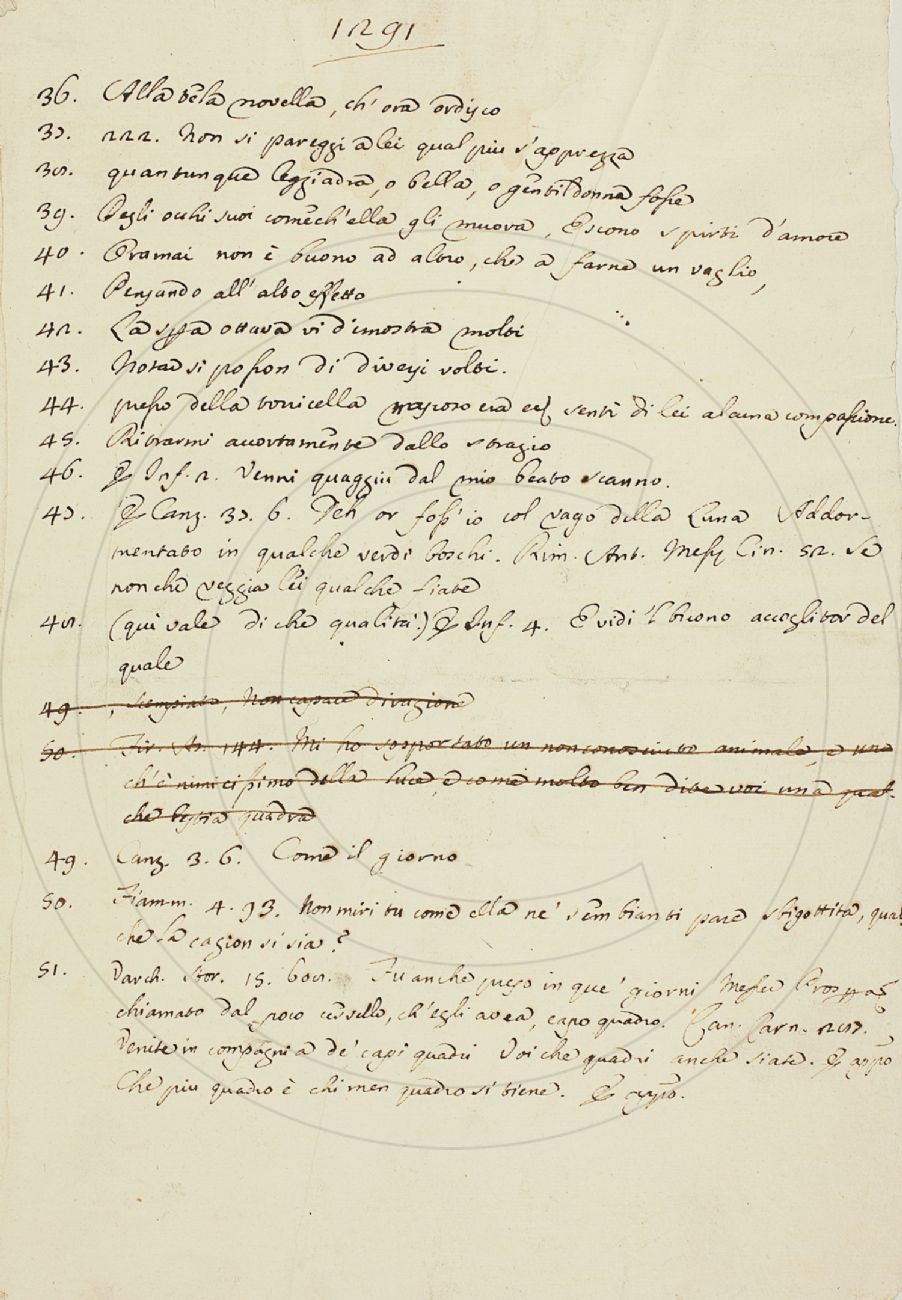 1291
36. Alla bella novella, ch' ora ordisco
37. 222. Non si pareggi a lei qual piu s'apprezza
38. quantunque leggiadra, o bella, o gentildonna fosse
39. Degli occhi suoi comech'ella gli muova, Escono spirti d'amore
40. Oramai non è buono ad altro, che a farne un vaglio,
41. Pensando all' alto effetto
42. La ottava vi dimostra molti
43. Notar si posson di diversi volti.
44. presso della torricella nascoso era ec. sentì di lei alcuna compassione.
45. Ritrarmi accortamente dallo strazio
46. E Inf. 2. Venni quaggiù dal mio beato scanno.
47. E Canz. 37. 6. Deh or foss' io col vago della Luna Addor-
mentato in qualche verdi boschi. Rim. Ant. Mess. Cin. 52. Se
non che veggia lei qualche fiate
48. (quì vale di che qualità.) E Inf. 4. E vidi 'l buono accoglitor del
quale
49. , Scempiato, Non capace di ragione
50. Fir. As. 144. Mi ha sopportato un non conosciuto animale, e uno
ch'è nimicissimo della luce, e come molto ben dite voi una qual-
che bestia quadra
49. Canz. 3. 6. Come il giorno
50. Fiamm. 4. 93. Non miri tu come ella ne' sembianti pare sbigottita, qual
che la cagion si sia?
51. Varch. Stor. 15. 608. Fu anche preso in que' giorni Messer
chiamato dal poco cervello, ch'egli avea, capo quadro. Can. Carn. 287.
Venite in compagnia de' capi quadri Voi che quadri anche siate. E appo
Che piu quadro è chi men quadro si tiene. E appo.